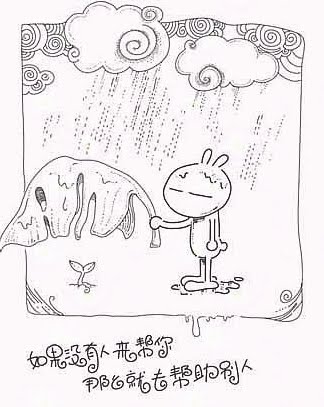 如果没有人来帮你
那么就去帮助别人